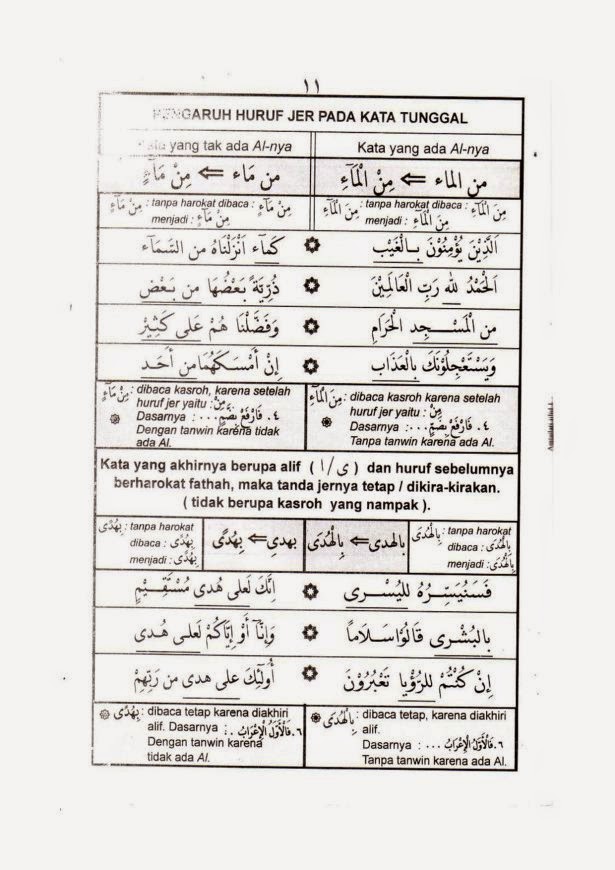 ١١
PENGARUH HURUF JER PADA KATA TUNGGAL
yang tak ada Al-nya
Kata yang ada Al-nya
من ماء ⇐ مِنْ مَآءٍ
من الماء ⇐ مِنْ الْمَآءِ
مِنْ مَآءٍ : tanpa harokat dibaca : مِنْ مَآءٍ
menjadi : مِنْ مَآءٍ
مِنَ الْمَآءِ : tanpa harokat dibaca : مِنَ الْمَآءِ
menjadi : مِنَ الْمَآءِ
اَلَّذِيْنَ يُؤْمِنُوْنَ بِالْغَيْبِ ۞ كَمَآء اَنْزَلْنَاهُ من السَّمَآء
اَلْحَمْدُ لله رَبِّ الْعَالَمِيْنَ ۞ ذُرِّيَةً بَعْضُهَا من بَعْض
من الْمَسْجِد الْحَرَامِ ۞ وَفَضَّلْنَا هُمْ على كَثِيْر
وَيَسْتَعْجِلُوْنَكَ بالْعَذَاب ۞ إِنْ أَمْسَكَهُمَا من أَحَد
مِنْ مَآءٍ : dibaca kasroh, karena setelah
huruf jer yaitu : مِنْ
Dasarnya : . . . ٤. فَارْفَعْ بِضَمٍّ
Dengan tanwin karena tidak
ada Al.
مِنَ الْمَآءِ : dibaca kasroh karena setelah
huruf jer yaitu : مِنْ
Dasarnya : . . . ٤. فَارْفَعْ بِضَمٍّ
Tanpa tanwin karena ada Al.
Kata yang akhirnya berupa alif ( ى / ا ) dan huruf sebelumnya
berharokat fathah, maka tanda jernya tetap / dikira-kirakan.
( tidak berupa kasroh yang nampak ).
بِهُدًى : tanpa harokat
dibaca : بِهُدًى
menjadi : بِهُدًى
بهدى ⇐ بِهُدًى
بالهدى ⇐ بِالْهُدَى
بِالْهُدَى : tanpa harokat
dibaca : بِالْهُدَى
menjadi : بِالْهُدَى
فَسَنُيَسِّرُهُ لليُسْرى ۞ اِنَّكَ لَعلى هُدى مُسْتَقِيْمٍ
بالبُشْرى قَالُوْا سَلَاماً ۞ وَإِنَّآ أَوْ إِيَّاكُمْ لَعلى هُدى
إِنْ كُنْتُمْ للرُؤْيا تَعْبُرُوْنَ ۞ أُولَئِكَ على هدى من رَبِّهِمْ
بِهُدًى : dibaca tetap karena diakhiri
alif. Dasarnya : ٦. فَالْأَوَّلُ الْإِعْرَابُ
Dengan tanwin karena
tidak ada Al.
بِالْهُدَى : dibaca tetap, karena diakhiri
alif.
Dasarnya : . . . ٦. فَالْأَوَّلُ الْإِعْرَابُ
Tanpa tanwin karena ada Al.